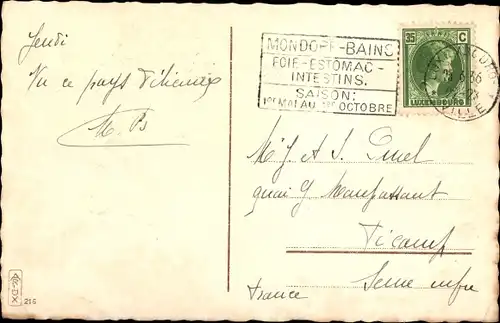 Jeudi
Vu ce pays
M. B
MONDORF-BAINS
FOIE-ESTOMAC-
INTESTINS.
SAISON:
1er MAI AU 1er OCTOBRE
35 C
LUXEMBOURG
VILLE
36
quai G Maupassant
Fécamp
Seine infre
France
216